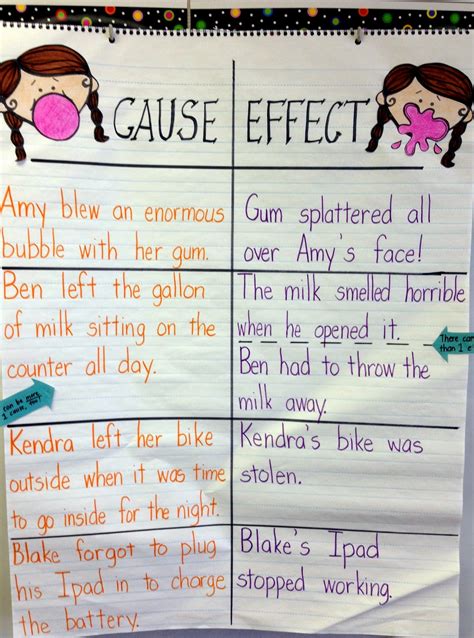 CAUSE EFFECT
Amy blew an enormous
bubble with her gum.
Gum splattered all
over Amy's face!
Ben left the gallon
of milk sitting on the
counter all day.
can be more
1 cause, too!
The milk smelled horrible
when he opened it.
Ben had to throw the
milk away.
There can
than 1 e
Kendra left her bike
outside when it was time
to go inside for the night.
Kendra's bike was
stolen.
Blake forgot to plug
his Ipad in to charge
the battery.
Blake's Ipad
stopped working.